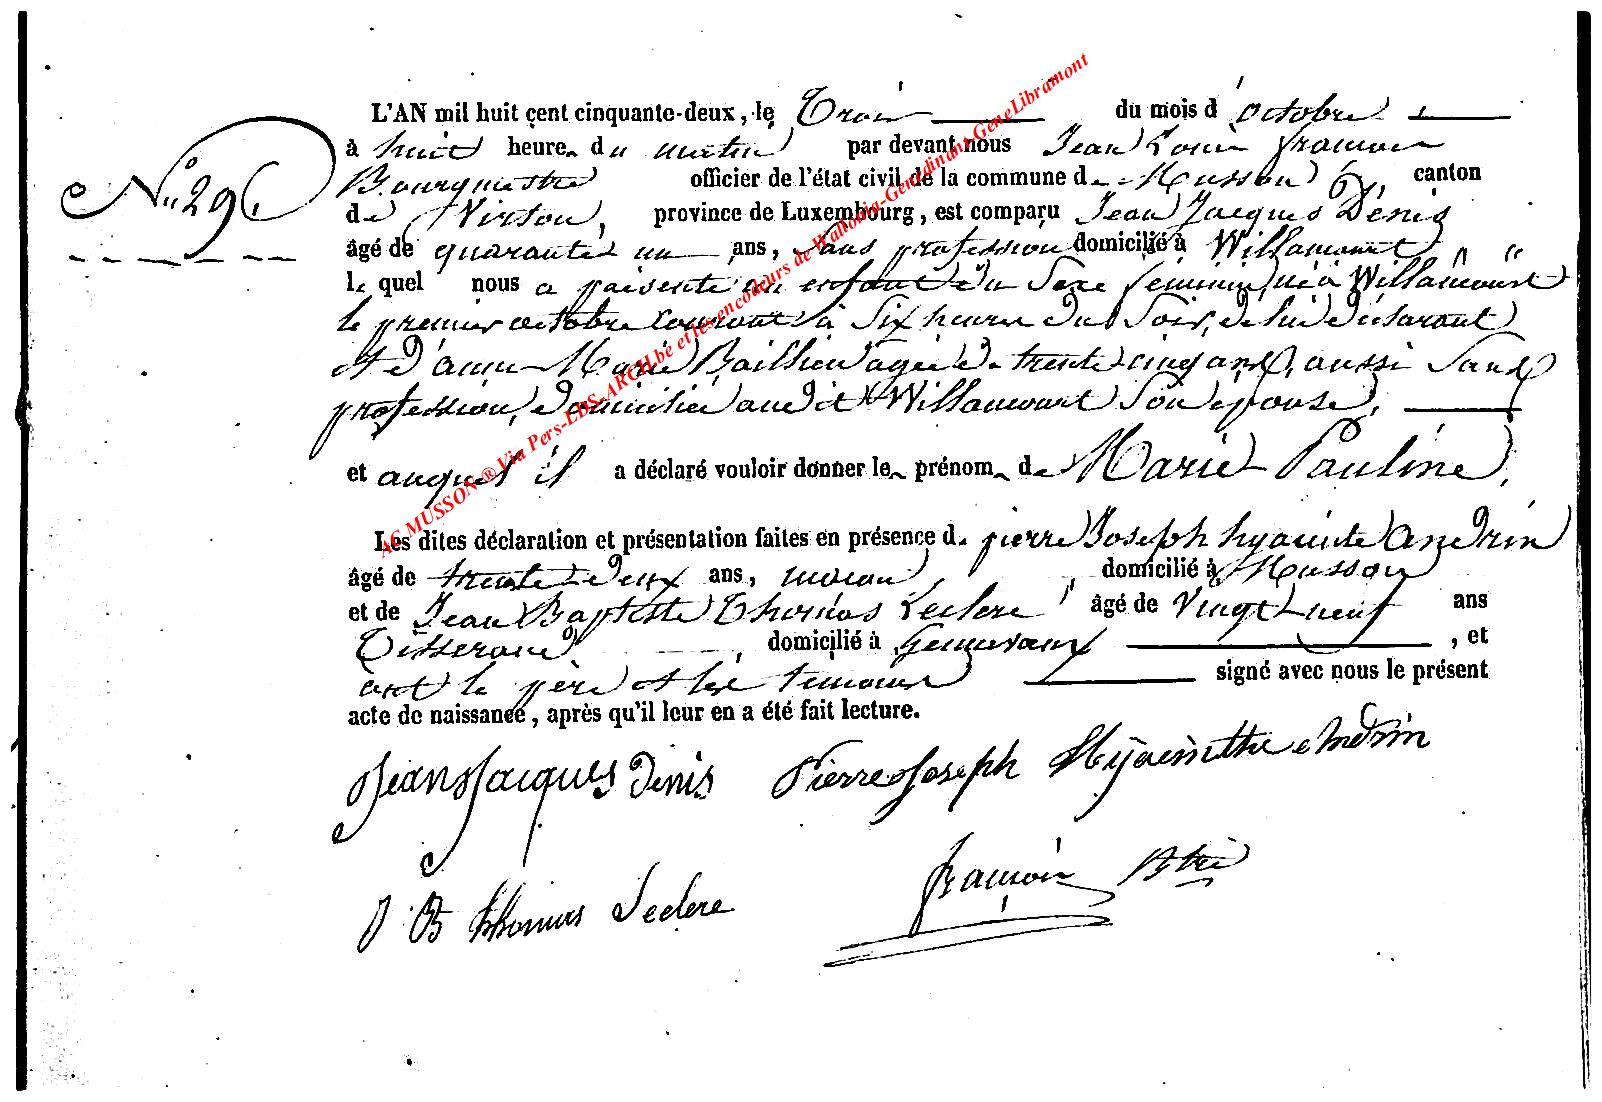 L'AN mil huit cent cinquante-deux, le Trois du mois d'octobre
à huit heures du matin par devant nous Jean Louis françois
Nº 29.
Bourgmestre officier de l'état civil de la commune de Musson canton
de Virton, province de Luxembourg, est comparu Jean Jacques Dénis
âgé de quarante un ans, sans profession domicilié à Willancourt
le quel nous a présenté un enfant du Sexe féminin, né à Willancourt
le premier octobre courant à Six heures du Soir, de lui déclarant
et d'anne Marie Baillieu agée de trente cinq ans, aussi Sans
profession, domiciliée audit Willancourt Son épouse,
et auquel il a déclaré vouloir donner les prénoms de Marie Pauline,
Les dites déclaration et présentation faites en présence de pierre Joseph hyacinte Andrin
âgé de trente deux ans, maçon, domicilié à Musson
et de Jean Baptiste Thomas Leclere âgé de Vingt neuf ans
Tisserand, domicilié à Gennevaux, et
ont le père et les témoins signé avec nous le présent
acte de naissance, après qu'il leur en a été fait lecture.
Jean Jacques Denis Pierre Joseph Hyacinthe Andrin
J B Thomas Leclere françois
AC MUSSON ® Via Pers-LDS-ARCH.be et les encodeurs de Wallonia-Genedinant-GeneLibramont